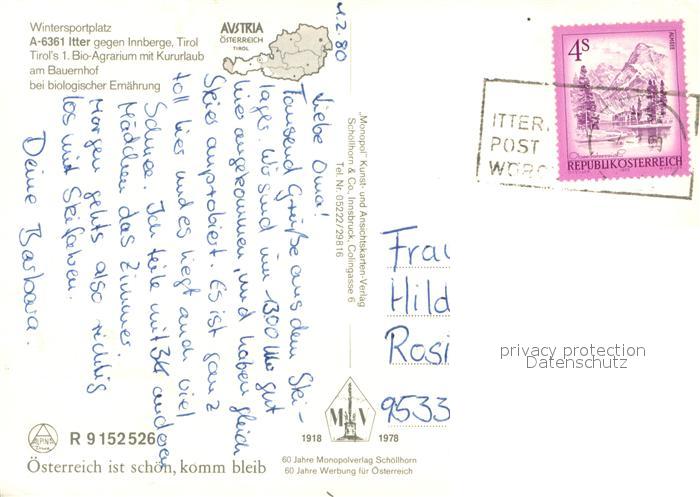 Wintersportplatz
A-6361 Itter gegen Innberge, Tirol
Tirol's 1. Bio-Agrarium mit Kururlaub
am Bauernhof
bei biologischer Ernährung
AVSTRIA
ÖSTERREICH
TIROL
1.2.80
Liebe Oma!
Tausend Grüße aus dem Ski-
lager. Wir sind um 1300 Uhr gut
hier angekommen, und haben gleich
Skier anprobiert. Es ist ganz
toll hier und es liegt auch viel
Schnee. Ich teile mit 34 anderen
Mädchen das Zimmer.
Morgen gehts also richtig
los mit Skifahren.
Deine Barbara.
"Monopol" Kunst- und Ansichtskarten-Verlag
Schöllhorn & Co., Innsbruck, Colingasse 6
Tel. Nr. 05222/29816
4S
ALMSEE
REPUBLIK ÖSTERREICH
ITTER,
POST
WÖRG
Frau
Hild
Rosi
9533
privacy protection
Datenschutz
ALPINE
R 9152526
Österreich ist schön, komm bleib
M V
1918 1978
60 Jahre Monopolverlag Schöllhorn
60 Jahre Werbung für Österreich